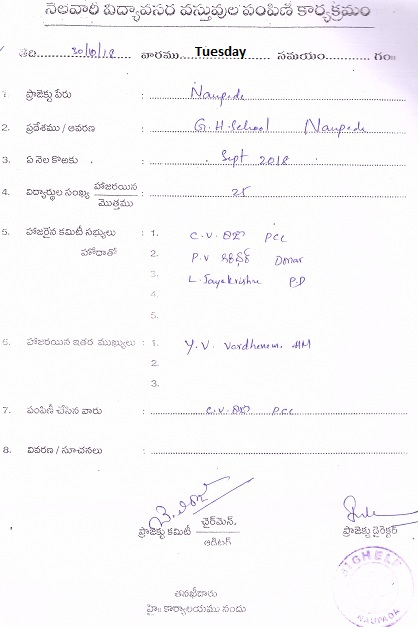 నెలవారీ విద్యావసర వస్తువుల పంపిణీ కార్యక్రమం
తేది 30/10/18 వారము Tuesday సమయం గం॥
1. ప్రాజెక్టు పేరు : Naupada
2. ప్రదేశము / ఆవరణ : G.H.School Naupada
3. ఏ నెల కొఱకు : Sept 2018
4. విద్యార్థుల సంఖ్య హాజరయిన / మొత్తము : 25
5. హాజరైన కమిటీ సభ్యులు : 1. C.V. PCC
హోదాతో 2. P.V Donar
3. L. Jayakrishna P.D
4.
5.
6. హాజరయిన ఇతర ముఖ్యులు : 1. Y.V. Vardhanam. HM
2.
3.
7. పంపిణీ చేసిన వారు : C.V. PCC
8. వివరణ / సూచనలు :
ప్రాజెక్టు కమిటీ చైర్‌మెన్. / ఆడిటర్ ప్రాజెక్టు డైరెక్టర్
తనఖీదారు
హై॥ కార్యాలయము నందు
NAUPADA